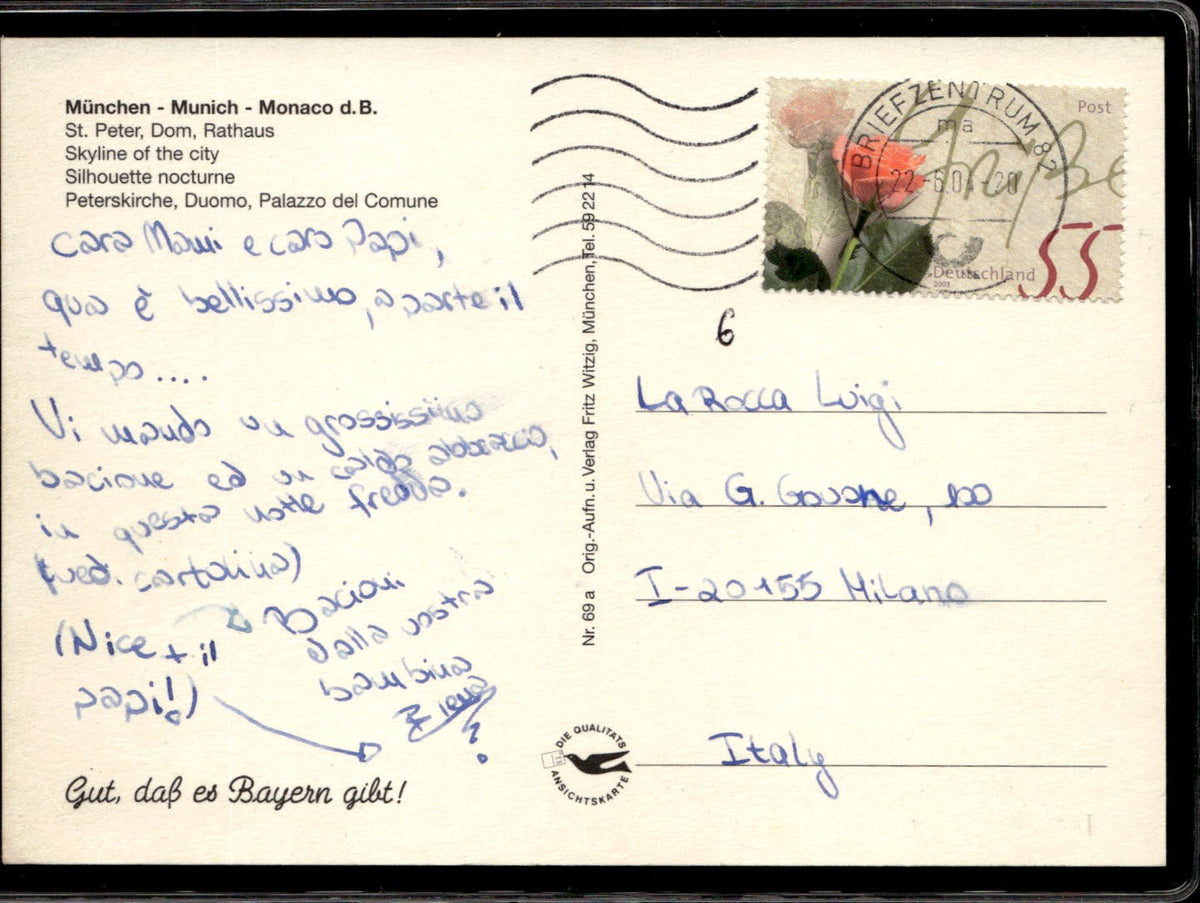 München - Munich - Monaco d.B.
St. Peter, Dom, Rathaus
Skyline of the city
Silhouette nocturne
Peterskirche, Duomo, Palazzo del Comune
Cara Mami e caro Papi,
qua è bellissimo, a parte il
tempo....
Vi mando un grossissimo
bacione ed un caldo abbraccio,
in questa notte fredda.
(ved. cartolina)
(Nice + il
papi!)
Bacioni
dalla vostra
bambina
Gut, daß es Bayern gibt!
Nr. 69 a Orig.-Aufn. u. Verlag Fritz Witzig, München, Tel. 59 22 14
DIE QUALITÄTS
ANSICHTSKARTE
BRIEFZENTRUM 82
ma
22.-6.04-20
Post
Deutschland
2003
55
6
La Rocca Luigi
Via G. , 100
I-20155 Milano
Italy